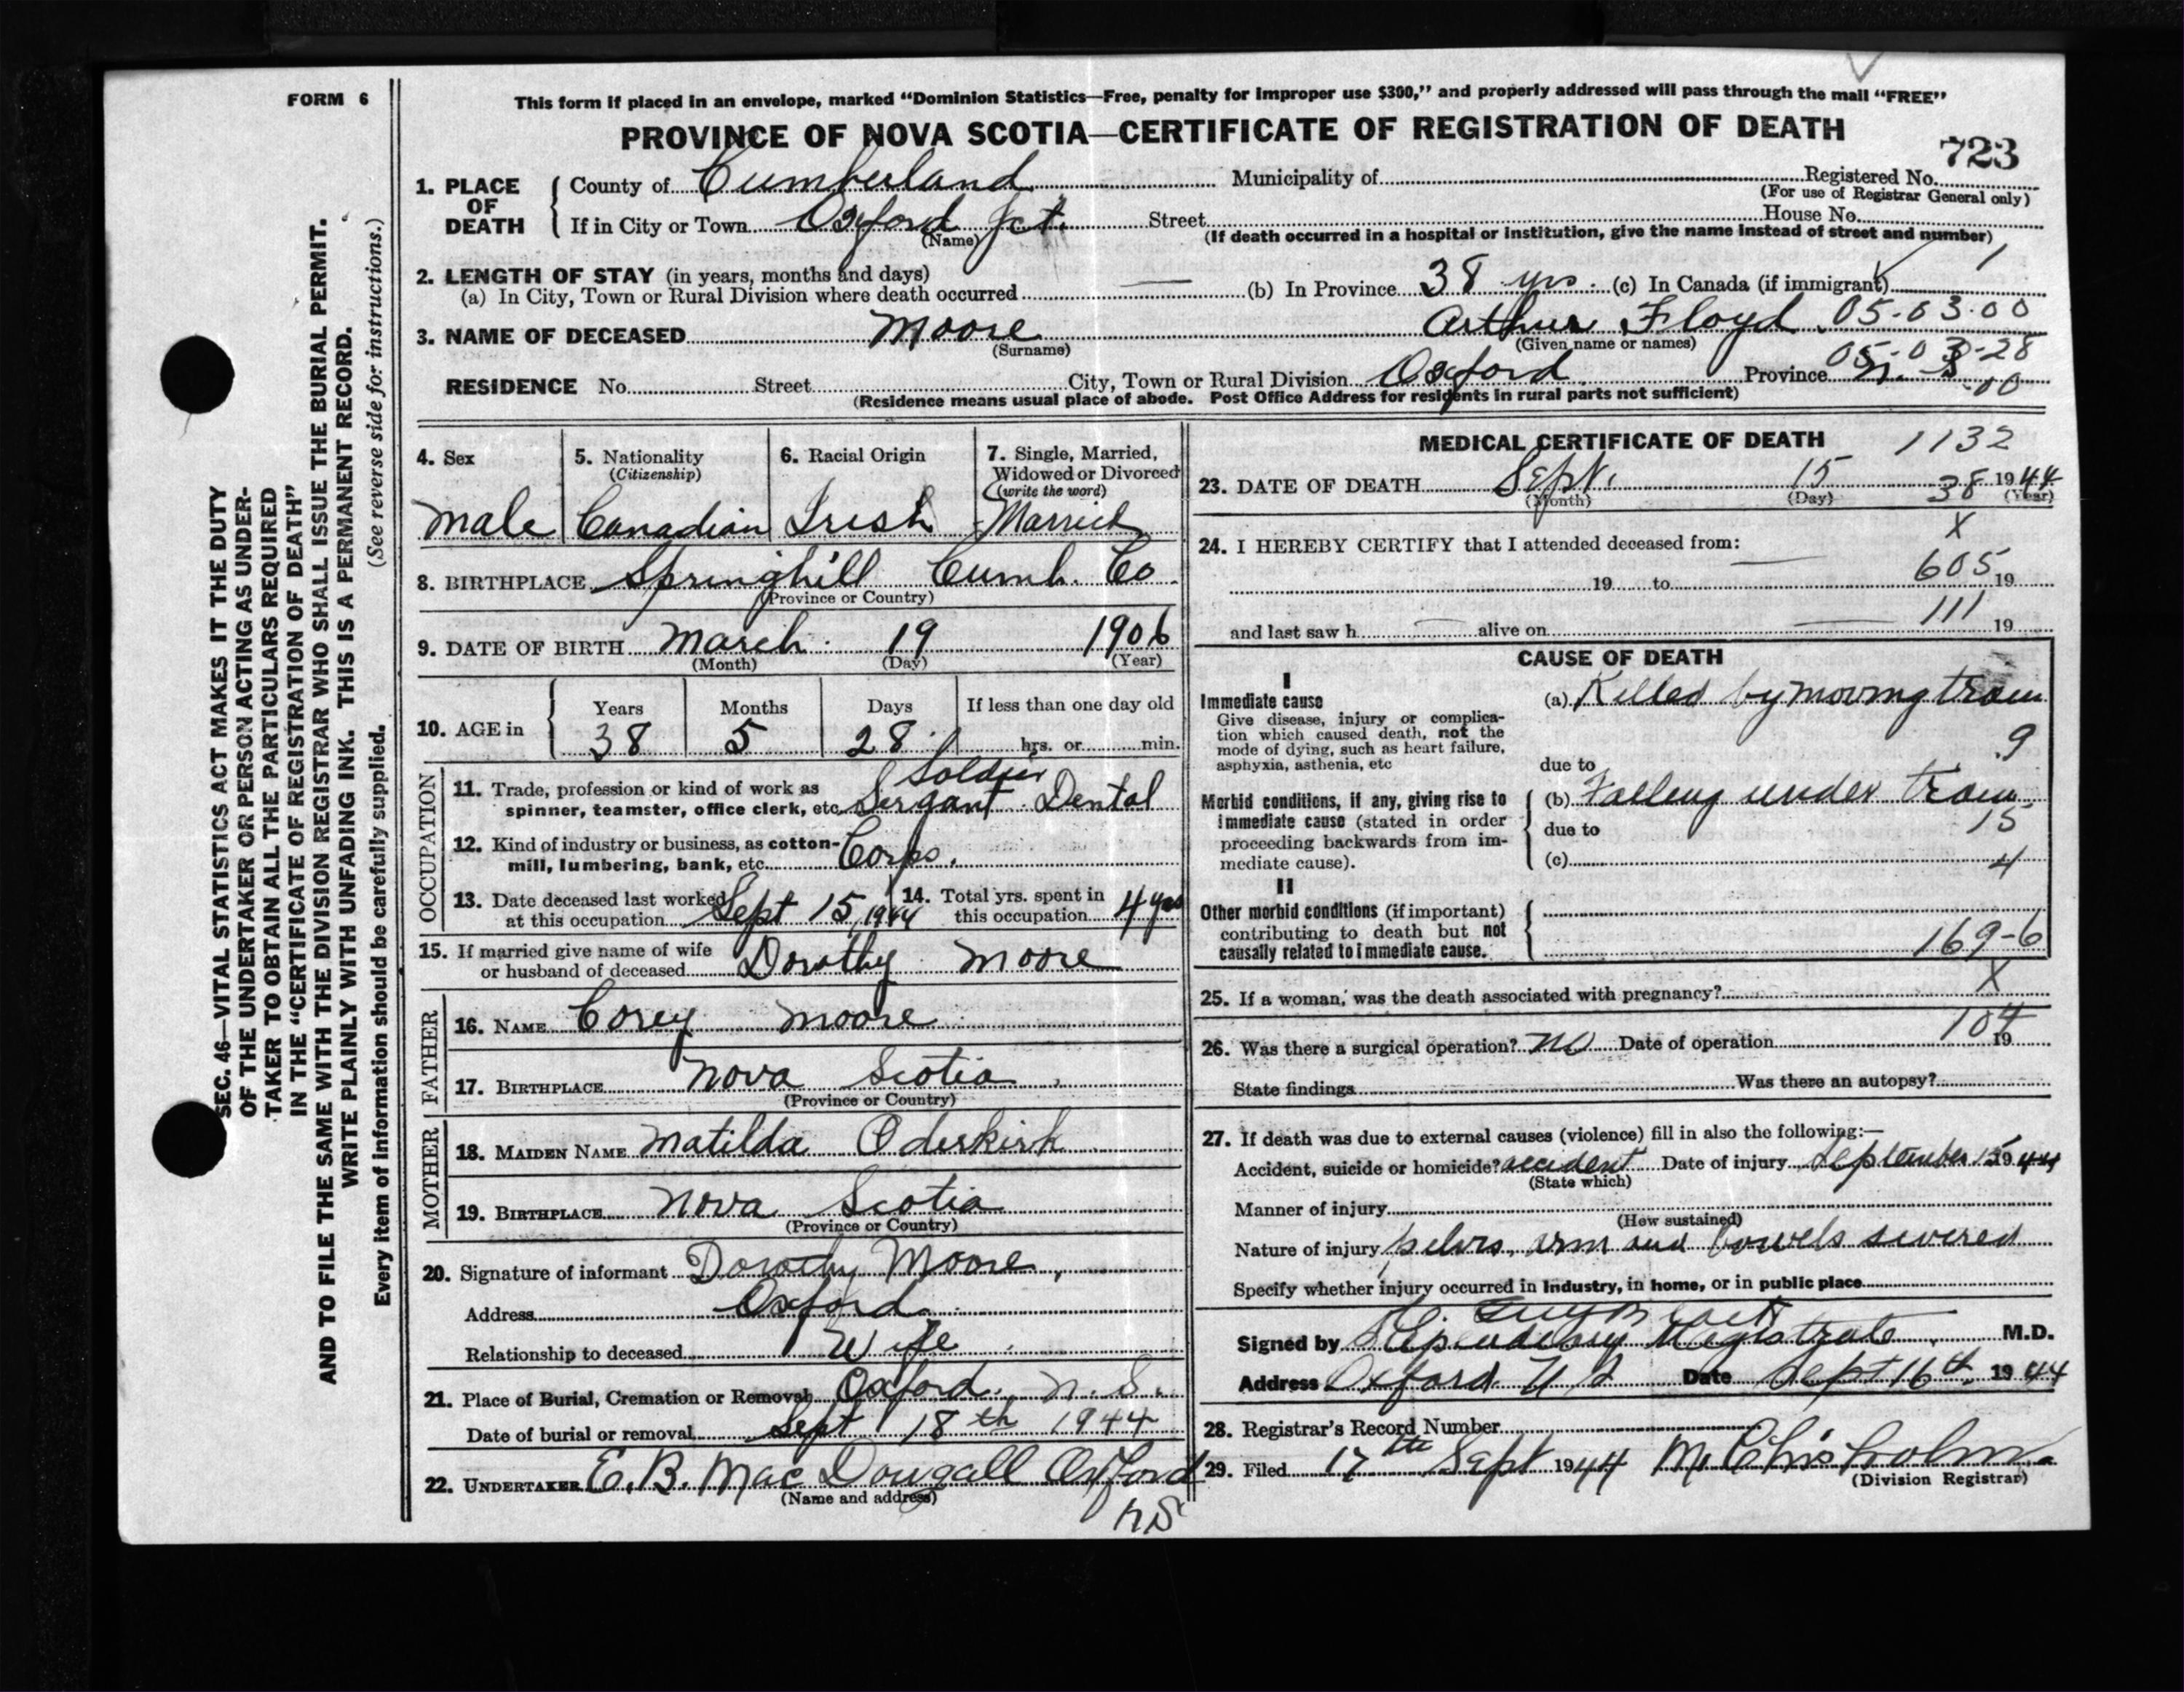 FORM 6
SEC. 46—VITAL STATISTICS ACT MAKES IT THE DUTY
OF THE UNDERTAKER OR PERSON ACTING AS UNDER-
TAKER TO OBTAIN ALL THE PARTICULARS REQUIRED
IN THE "CERTIFICATE OF REGISTRATION OF DEATH"
AND TO FILE THE SAME WITH THE DIVISION REGISTRAR WHO SHALL ISSUE THE BURIAL PERMIT.
WRITE PLAINLY WITH UNFADING INK. THIS IS A PERMANENT RECORD.
Every item of information should be carefully supplied. (See reverse side for instructions.)
This form if placed in an envelope, marked "Dominion Statistics—Free, penalty for improper use $300," and properly addressed will pass through the mail "FREE"
PROVINCE OF NOVA SCOTIA—CERTIFICATE OF REGISTRATION OF DEATH
723
1. PLACE OF DEATH
County of Cumberland Municipality of Registered No.
(For use of Registrar General only)
If in City or Town Oxford Jct. Street House No.
(Name) (If death occurred in a hospital or institution, give the name instead of street and number)
2. LENGTH OF STAY (in years, months and days)
(a) In City, Town or Rural Division where death occurred — (b) In Province 38 yrs. (c) In Canada (if immigrant) 1
3. NAME OF DECEASED Moore Arthur Floyd 05-03-00
(Surname) (Given name or names)
05-03-28
RESIDENCE No. Street City, Town or Rural Division Oxford Province N.S.
00
(Residence means usual place of abode. Post Office Address for residents in rural parts not sufficient)
4. Sex
male
5. Nationality
(Citizenship)
Canadian
6. Racial Origin
Irish
7. Single, Married,
Widowed or Divorced
(write the word)
Married
8. BIRTHPLACE Springhill Cumb. Co
(Province or Country)
9. DATE OF BIRTH March 19 1906
(Month) (Day) (Year)
10. AGE in Years Months Days If less than one day old
38 5 28 hrs. or min.
OCCUPATION
Soldier
11. Trade, profession or kind of work as
spinner, teamster, office clerk, etc. Sergant Dental
12. Kind of industry or business, as cotton-
mill, lumbering, bank, etc. Corps.
13. Date deceased last worked
at this occupation Sept 15, 1944
14. Total yrs. spent in
this occupation 4 yrs
15. If married give name of wife
or husband of deceased Dorothy Moore
FATHER
16. NAME Corey Moore
17. BIRTHPLACE Nova Scotia
(Province or Country)
MOTHER
18. MAIDEN NAME Matilda Oderkirk
19. BIRTHPLACE Nova Scotia
(Province or Country)
20. Signature of informant Dorothy Moore,
Address Oxford
Relationship to deceased Wife
21. Place of Burial, Cremation or Removal Oxford. N.S.
Date of burial or removal Sept 18th 1944
22. UNDERTAKER E. B. MacDougall Oxford
(Name and address) NS
MEDICAL CERTIFICATE OF DEATH 1132
23. DATE OF DEATH Sept. 15 38 1944
(Month) (Day) (Year)
X
24. I HEREBY CERTIFY that I attended deceased from: —
19 to 605 19
111
and last saw h — alive on — 19
CAUSE OF DEATH
I
Immediate cause
Give disease, injury or complica-
tion which caused death, not the
mode of dying, such as heart failure,
asphyxia, asthenia, etc
(a) Killed by moving train
.9
due to
Morbid conditions, if any, giving rise to
immediate cause (stated in order
proceeding backwards from im-
mediate cause).
(b) Falling under train.
due to 15
(c) 4
II
Other morbid conditions (if important)
contributing to death but not
causally related to immediate cause.
169-6
25. If a woman, was the death associated with pregnancy? X
104
26. Was there a surgical operation? No Date of operation 19
State findings Was there an autopsy?
27. If death was due to external causes (violence) fill in also the following:—
Accident, suicide or homicide? accident Date of injury September 15 1944
(State which)
Manner of injury
(How sustained)
Nature of injury pelvis, arm and bowels severed
Specify whether injury occurred in Industry, in home, or in public place
Signed by Stipendiary Magistrate M.D.
Address Oxford N S Date Sept 16th 1944
28. Registrar's Record Number
29. Filed 17th Sept 1944 M. Chisholm.
(Division Registrar)